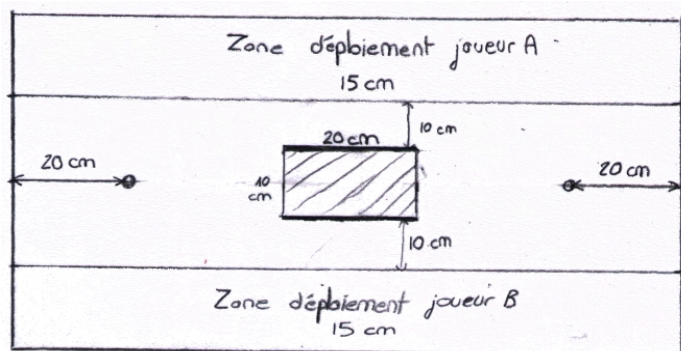 Zone déploiement joueur A
15 cm
10 cm
20 cm
20 cm
10
cm
20 cm
10 cm
Zone déploiement joueur B
15 cm